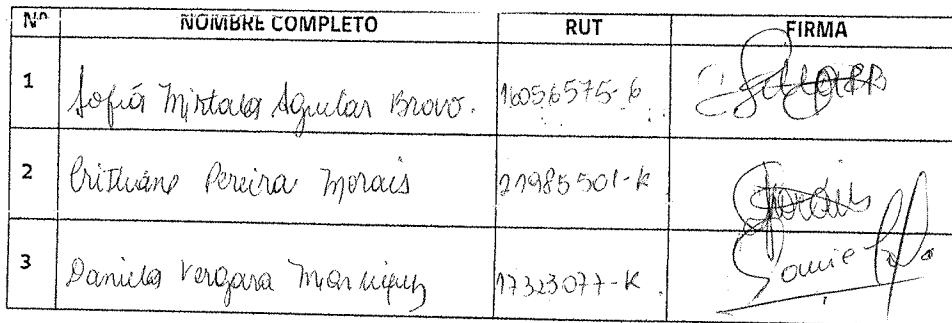 Nº NOMBRE COMPLETO RUT FIRMA
1 Sofiá Mirtala Aguilar Bravo. 16056575-6
2 Crithiane Pereira Morais 21985501-k
3 Daniela Vergara 17323077-K